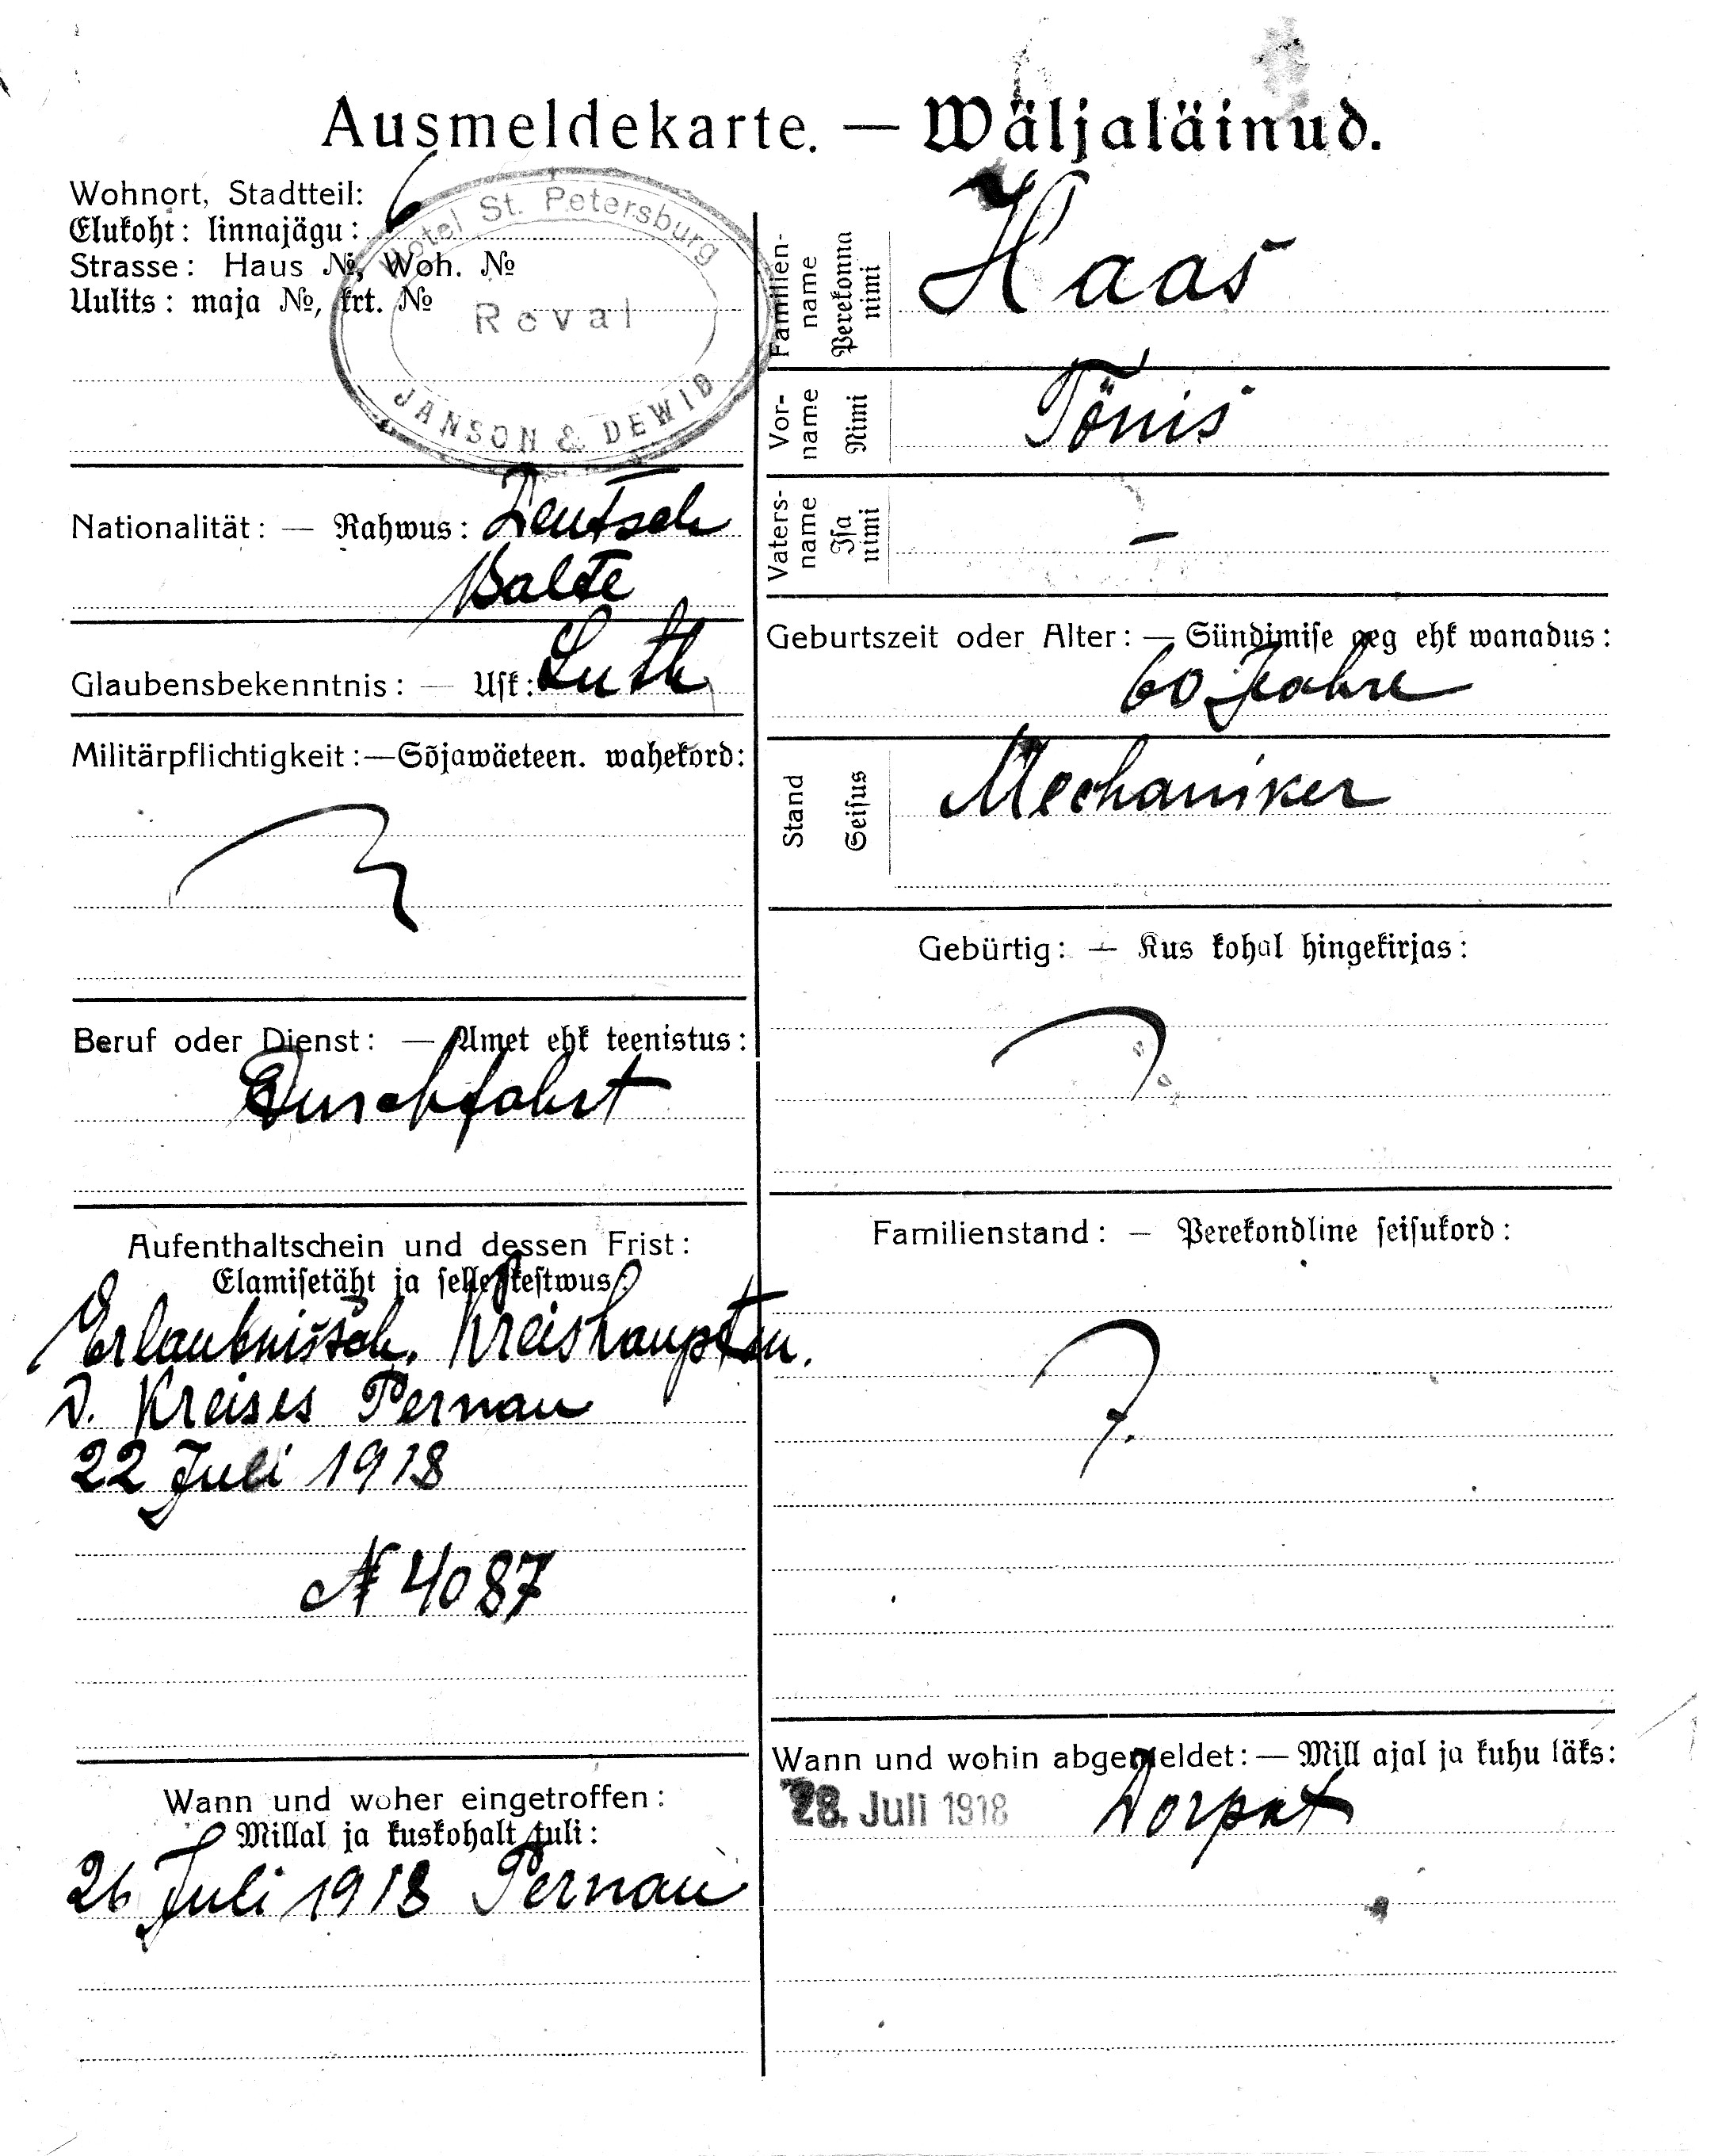 Ausmeldekarte. — Wäljaläinud.
Wohnort, Stadtteil:
Elukoht: linnajägu: 6
Strasse: Haus №, Woh. №
Uulits: maja №, krt. №
Hotel St. Petersburg
Reval
JANSON & DEWID
Nationalität: — Rahwus: Deutsch
Balte
Glaubensbekenntnis: — Usk: Luth
Militärpflichtigkeit:—Sõjawäeteen. wahekord:
Beruf oder Dienst: — Amet ehk teenistus:
Durchfahrt
Aufenthaltschein und dessen Frist:
Elamisetäht ja selle kestwus:
Erlaubnissch. Kreishauptm.
D. Kreises Pernau
22 Juli 1918
№ 4087
Wann und woher eingetroffen:
Millal ja kuskohalt tuli:
26 Juli 1918 Pernau
Familien-
name
Perekonna
nimi
Haas
Vor-
name
Nimi
Tönis
Vaters-
name
Isa
nimi
—
Geburtszeit oder Alter: — Sündimise aeg ehk wanadus:
60 Jahre
Stand
Seisus
Mechaniker
Gebürtig: — Kus kohal hingekirjas:
Familienstand: — Perekondline seisukord:
Wann und wohin abgemeldet: — Mill ajal ja kuhu läks:
28. Juli 1918 Dorpat